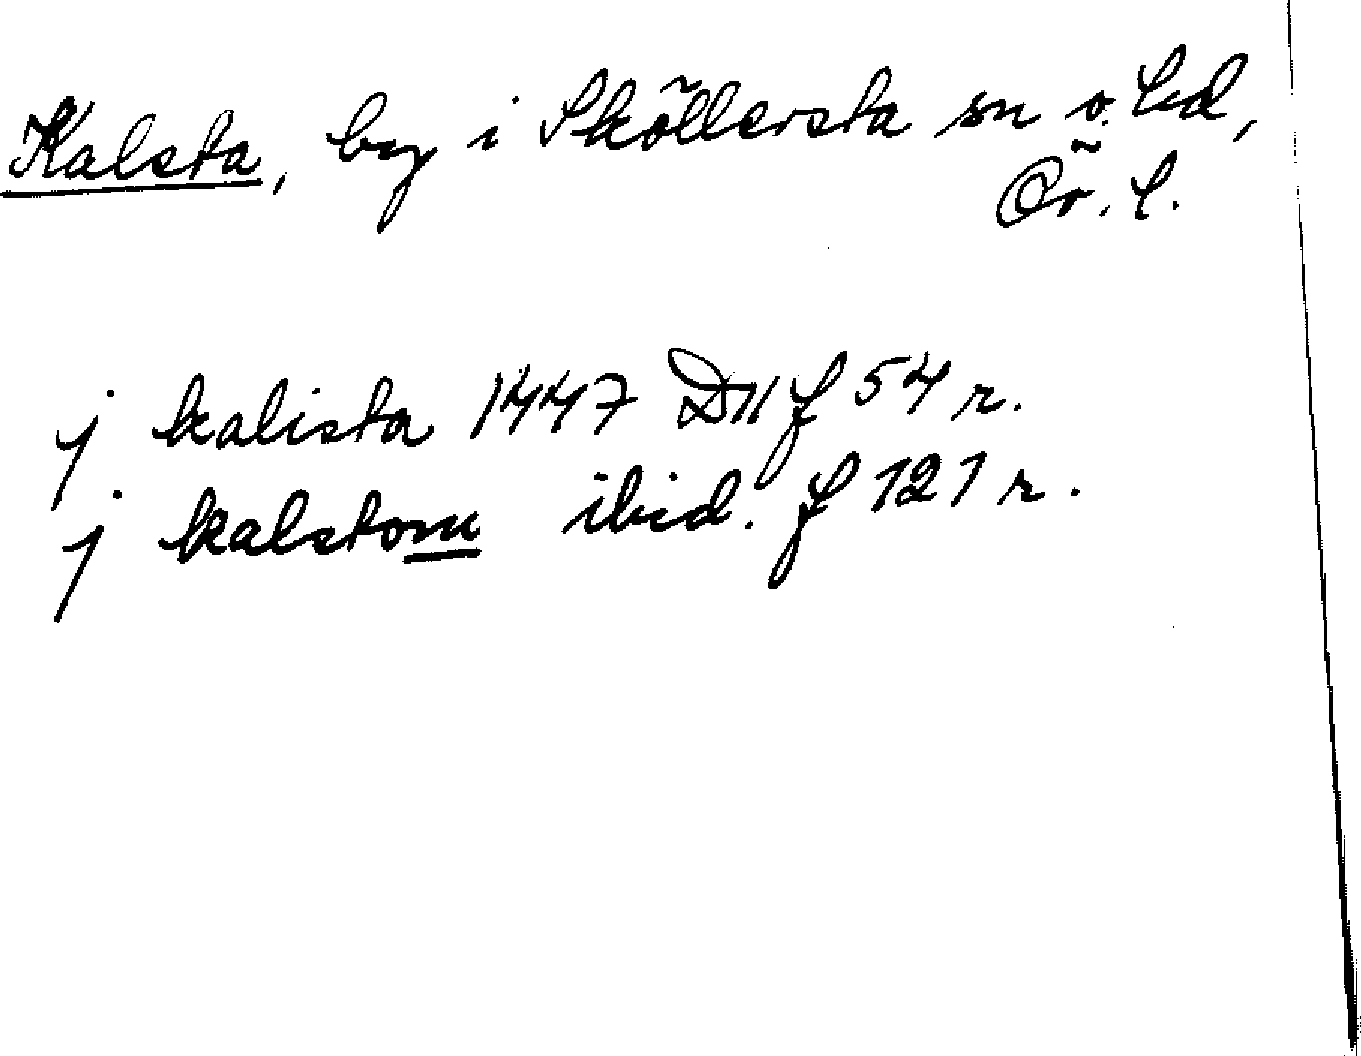 Kalsta, by i Sköllersta sn o. hd,
Ör. l.
j kalista 1447 D 11 f 54 r.
j kalstom ibid. f 121 r.